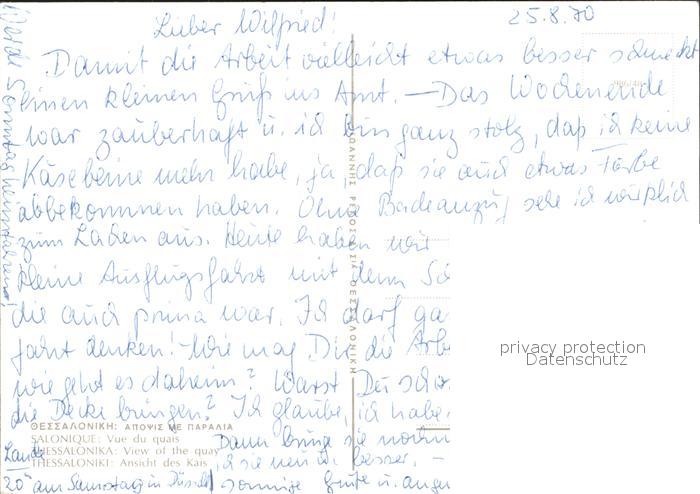 25.8.70
Lieber Wilfried!
Damit die Arbeit vielleicht etwas besser schmeckt
einen kleinen Gruß ins Amt. — Das Wochenende
war zauberhaft u. ich bin ganz stolz, daß ich keine
Käsebeine mehr habe, ja, daß sie auch etwas Farbe
abbekommen haben. Ohne Badeanzug sehe ich wirklich
zum Lachen aus. Heute haben wir
kleine Ausflugsfahrt mit dem
die auch prima war. Ich darf
fahrt denken! - Wie mag Dir die Arb
wie geht es daheim? Warst Du schon
die Decke bringen? Ich glaube, ich habe
Dann bring sie
besser. -
sonnige Grüße u.
ΘΕΣΣΑΛΟΝΙΚΗ: ΑΠΟΨΙΣ ΜΕ ΠΑΡΑΛΙΑ
SALONIQUE: Vue du quais
THESSALONIKA: View of the quay
THESSALONIKI: Ansicht des Kais
Lande
20⁰⁰ am Samstag in Düssel
Werde Sonntag heimfahren!
ΙΩΑΝΝΗΣ ΡΕΚΟΣ & ΣΙΑ ΘΕΣΣΑΛΟΝΙΚΗ
privacy protection
Datenschutz